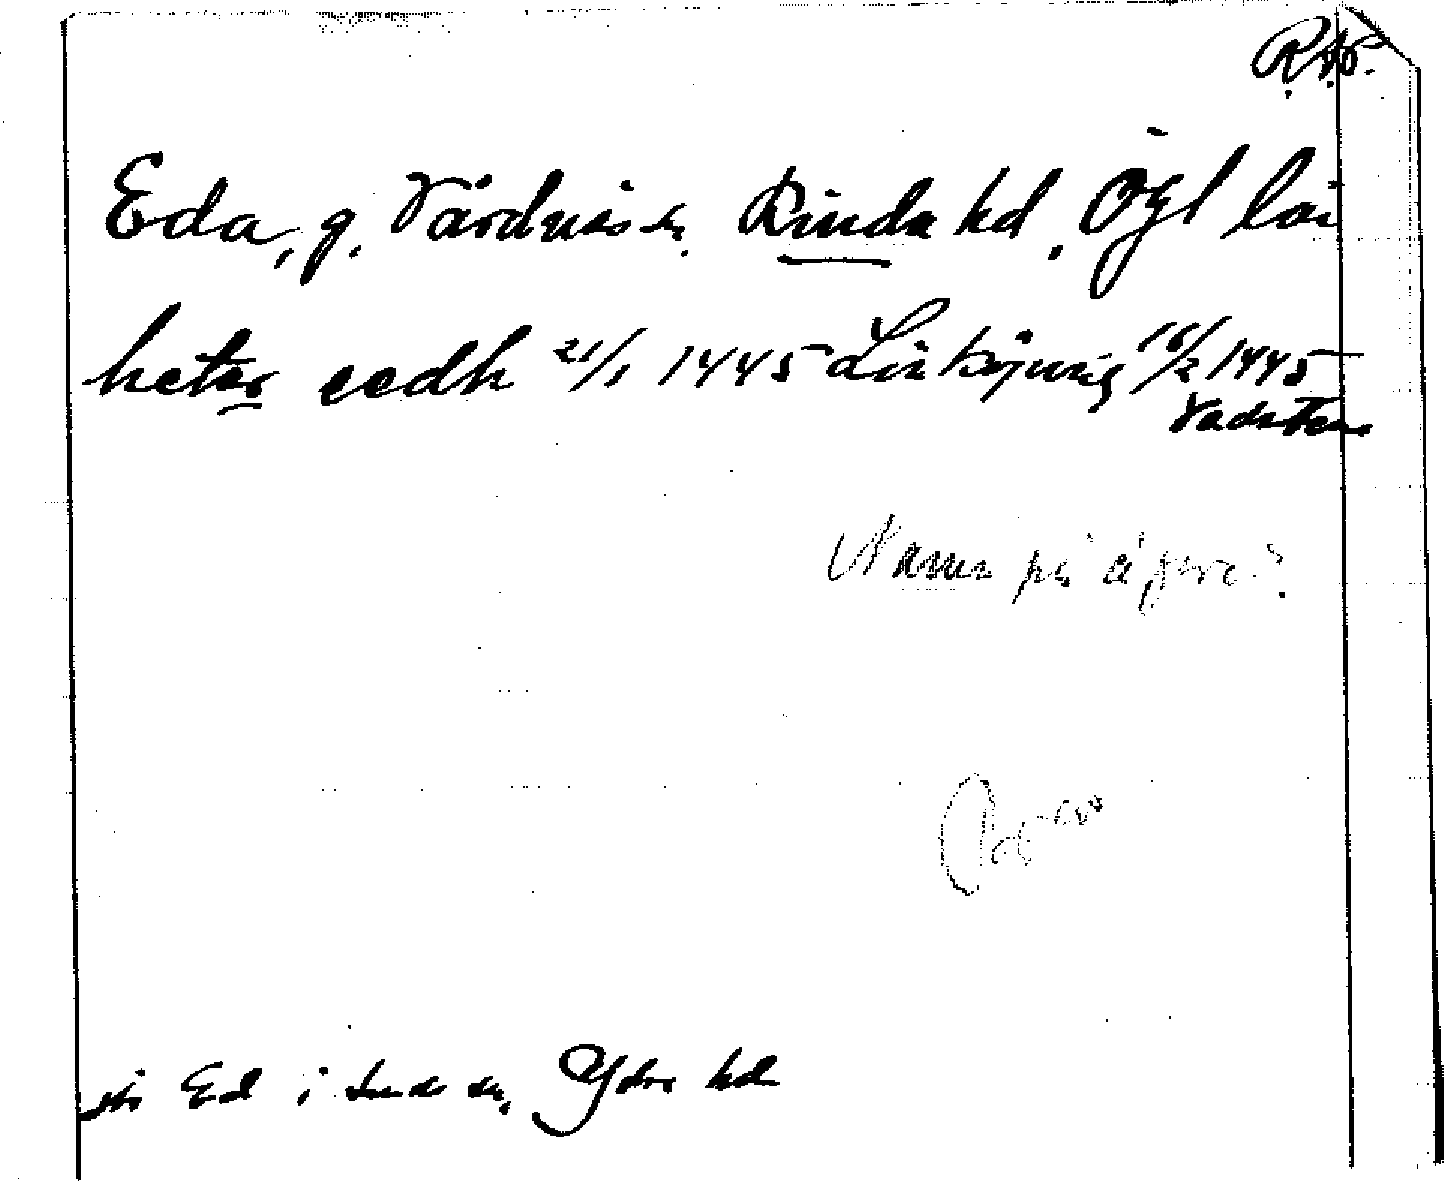 R.Ap.
Eda, g. Värdnäs sn. Kinda hd. Ögl län
heter eedh 21/1 1445 Linköping 16/2 1445
Vadstena
Namn på ägare?
se Ed i Sunds sn, Ydre hd